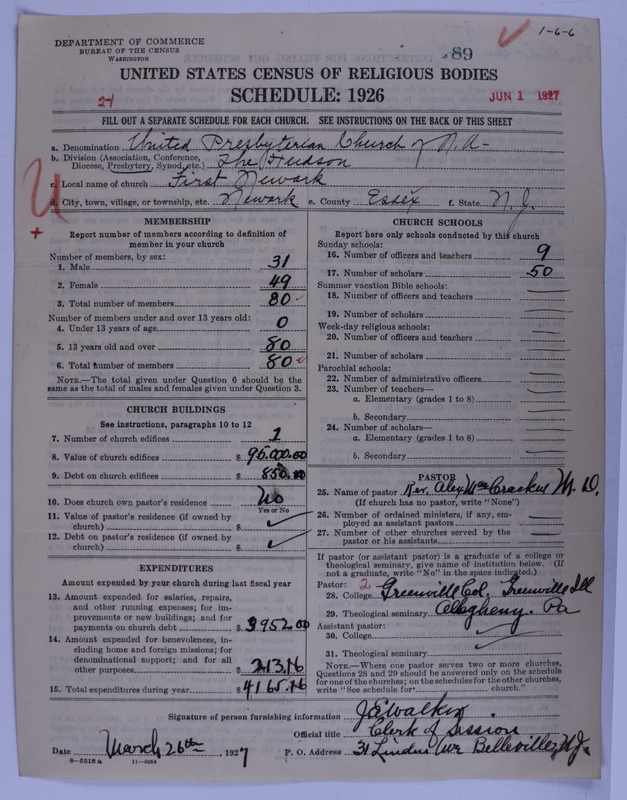 1-6-6
DEPARTMENT OF COMMERCE
BUREAU OF THE CENSUS
WASHINGTON
89
UNITED STATES CENSUS OF RELIGIOUS BODIES
SCHEDULE: 1926
JUN 1 1927
FILL OUT A SEPARATE SCHEDULE FOR EACH CHURCH. SEE INSTRUCTIONS ON THE BACK OF THIS SHEET
a. Denomination United Presbyterian Church of N. A-
b. Division (Association, Conference, Diocese, Presbytery, Synod, etc.) The Hudson
c. Local name of church First Newark
d. City, town, village, or township, etc. Newark e. County Essex f. State N. J.
MEMBERSHIP
Report number of members according to definition of
member in your church
Number of members, by sex:
1. Male 31
2. Female 49
3. Total number of members 80
Number of members under and over 13 years old:
4. Under 13 years of age 0
5. 13 years old and over 80
6. Total number of members 80
NOTE.—The total given under Question 6 should be
same as the total of males and females given under Question 3.
CHURCH BUILDINGS
See instructions, paragraphs 10 to 12
7. Number of church edifices 1
8. Value of church edifices $ 95,000.00
9. Debt on church edifices $ 850.00
10. Does church own pastor's residence No
Yes or No
11. Value of pastor's residence (if owned by
church) $
12. Debt on pastor's residence (if owned by
church) $
EXPENDITURES
Amount expended by your church during last fiscal year
13. Amount expended for salaries, repairs,
and other running expenses; for im-
provements or new buildings; and for
payments on church debt $ 3952.00
14. Amount expended for benevolences, in-
cluding home and foreign missions; for
denominational support; and for all
other purposes $ 213.16
15. Total expenditures during year $ 4165.16
CHURCH SCHOOLS
Report here only schools conducted by this church
Sunday schools:
16. Number of officers and teachers 9
17. Number of scholars 50
Summer vacation Bible schools:
18. Number of officers and teachers
19. Number of scholars
Week-day religious schools:
20. Number of officers and teachers
21. Number of scholars
Parochial schools:
22. Number of administrative officers
23. Number of teachers—
a. Elementary (grades 1 to 8)
b. Secondary
24. Number of scholars—
a. Elementary (grades 1 to 8)
b. Secondary
PASTOR
25. Name of pastor Rev. Alex
(If church has no pastor, write "None")
26. Number of ordained ministers, if any, em-
ployed as assistant pastors
27. Number of other churches served by the
pastor or his assistants
If pastor (or assistant pastor) is a graduate of a college or
theological seminary, give name of institution below. (If
not a graduate, write "No" in the space indicated.)
Pastor: 2
28. College Greenville Col, Greenville Ill
29. Theological seminary Allegheny. Pa
Assistant pastor:
30. College
31. Theological seminary
NOTE.—Where one pastor serves two or more churches,
Questions 28 and 29 should be answered only on the schedule
for one of the churches; on the schedules for the other churches,
write "See schedule for church."
Signature of person furnishing information J. E. Walker
Official title Clerk of Session
Date March 26th, 1927 P. O. Address 31 Linden Ave Belleville, N. J.
8—5518 a 11—9054